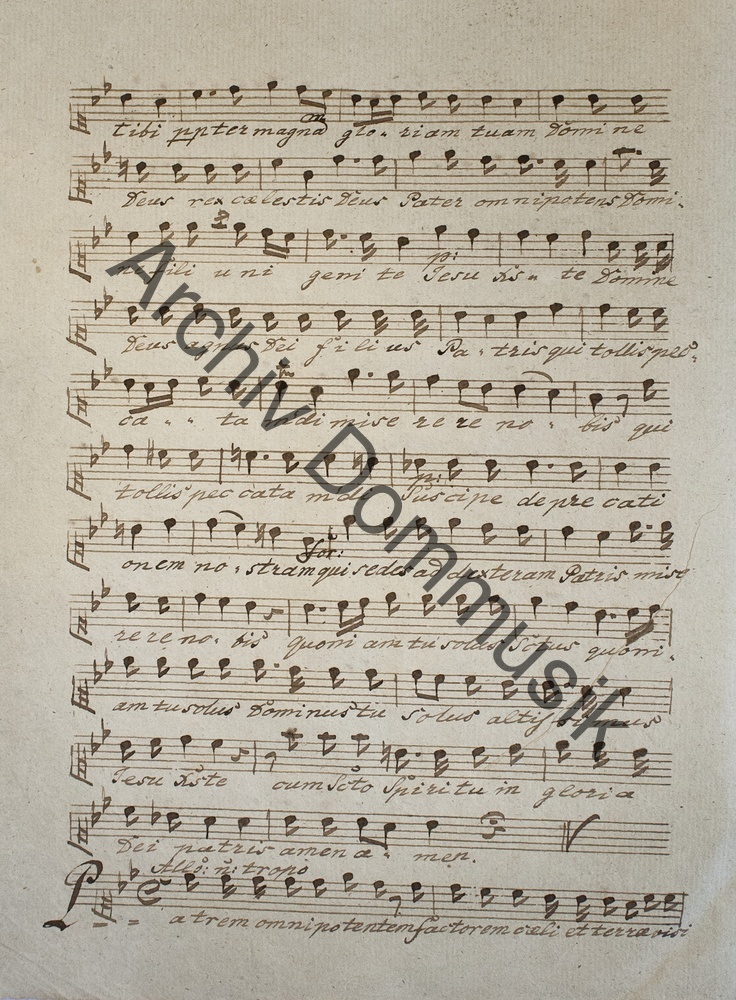 tibi ppter magna glo-riam tuam Domine
Deus rex cælestis Deus Pater omnipotens Domi-
ne fili uni geni te Jesu Xs-te Domine
p:
Deus agnus Dei filius Pa-tris qui tollis pec-
ca--ta mdi mise re re no-bis qui
tollis pec cata mdi Suscipe de pre cati
p:
for:
onem no-stram qui sedes ad dexteram Patris mise
re re no-bis quoni am tu solus Sctus quoni-
am tu solus Dominus tu solus altissimus
Jesu Xste cum Scto Spiritu in gloria
Dei patris amen a-men.
Allo: ñ: tropo
Patrem omnipotentem factorem cæli et terræ visi
Archiv Dommusik